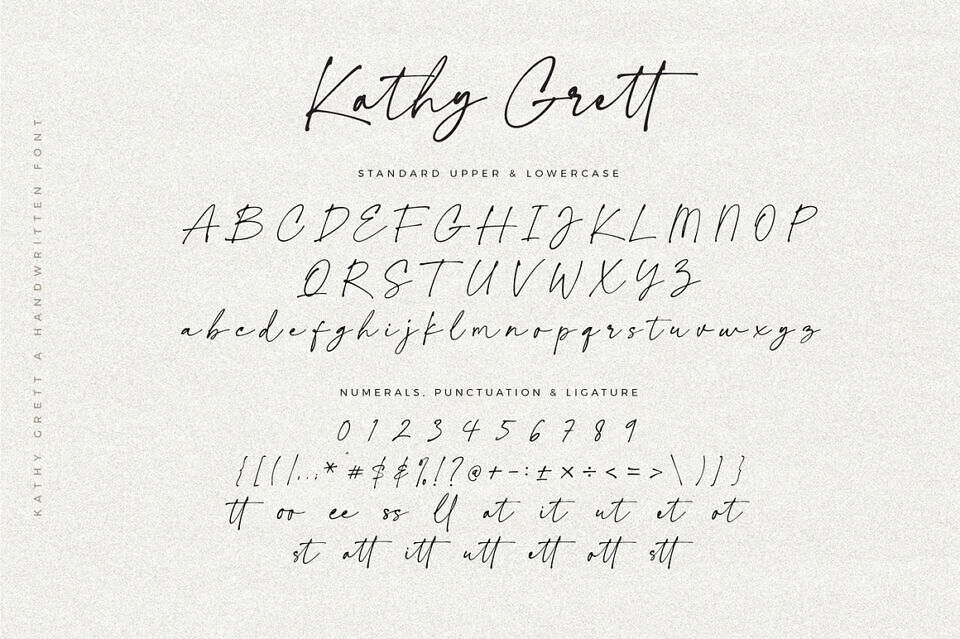 Kathy Grett
STANDARD UPPER & LOWERCASE
A B C D E F G H I J K L M N O P
Q R S T U V W X Y Z
a b c d e f g h i j k l m n o p q r s t u v w x y z
NUMERALS, PUNCTUATION & LIGATURE
0 1 2 3 4 5 6 7 8 9
{ [ ( / . , ; * # $ & % ! ? @ + - : ± × ÷ < = > \ ) ] }
tt oo ee ss ll at it ut et ot
st att itt utt ett ott stt
KATHY GRETT A HANDWRITTEN FONT